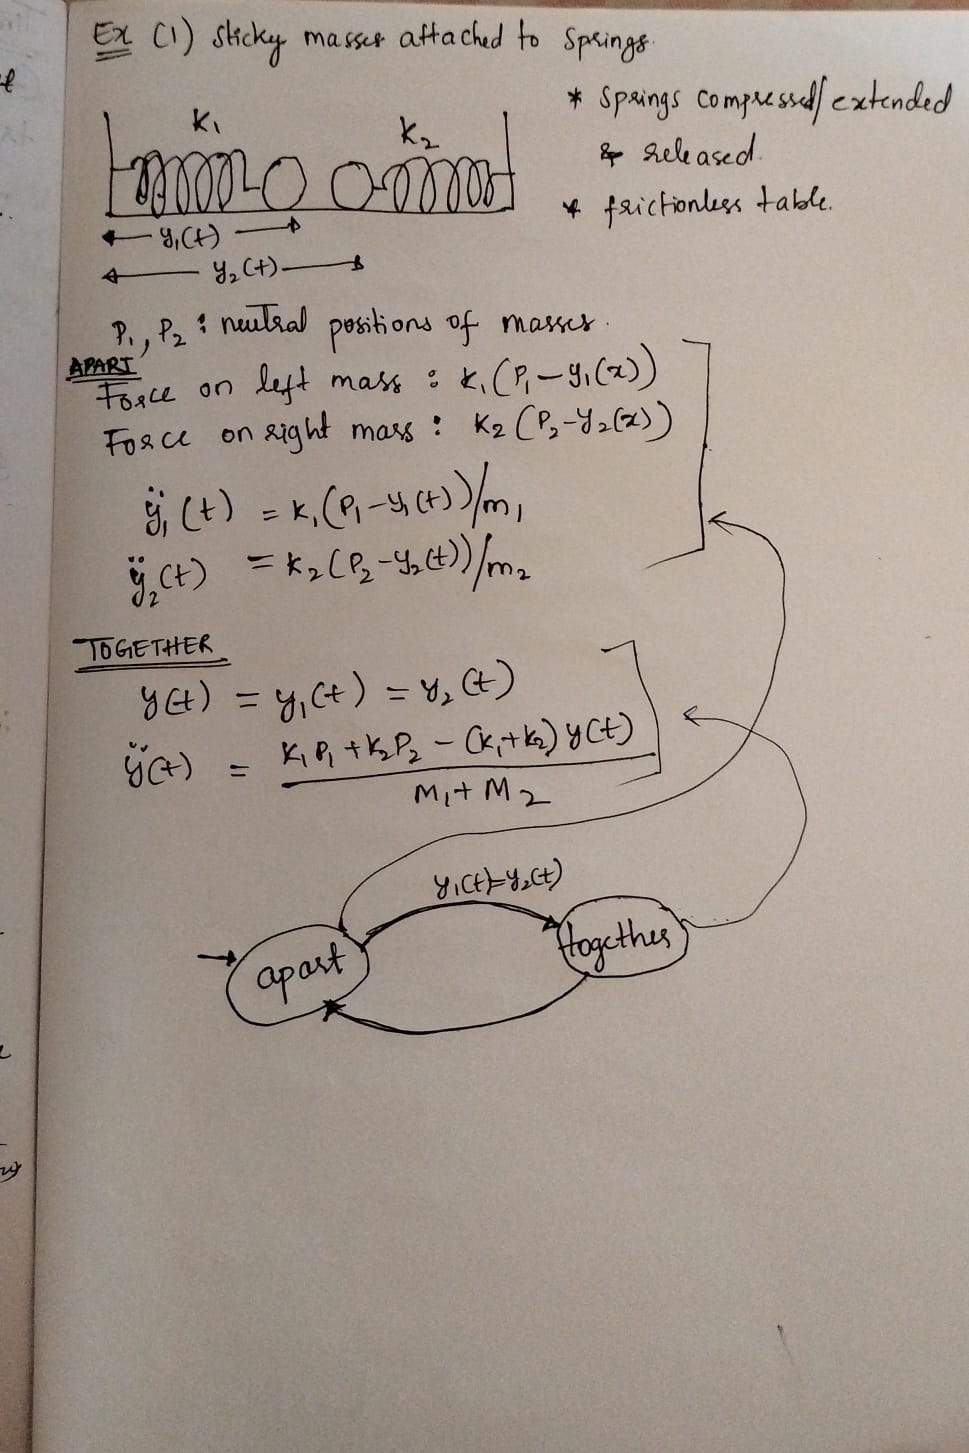 Ex (1) Sticky masses attached to Springs.
* Springs compressed/extended
& released.
* frictionless table.
K₁
K₂
y₁(t)
y₂(t)
P₁, P₂ : neutral positions of masses.
APART
Force on left mass : K₁(P₁-y₁(x))
Force on right mass : K₂(P₂-y₂(x))
ÿ₁(t) = K₁(P₁-y₁(t))/m₁
ÿ₂(t) = K₂(P₂-y₂(t))/m₂
TOGETHER
y(t) = y₁(t) = y₂(t)
ÿ(t) = K₁P₁+K₂P₂-(K₁+K₂)y(t)
M₁+M₂
y₁(t)=y₂(t)
apart
together